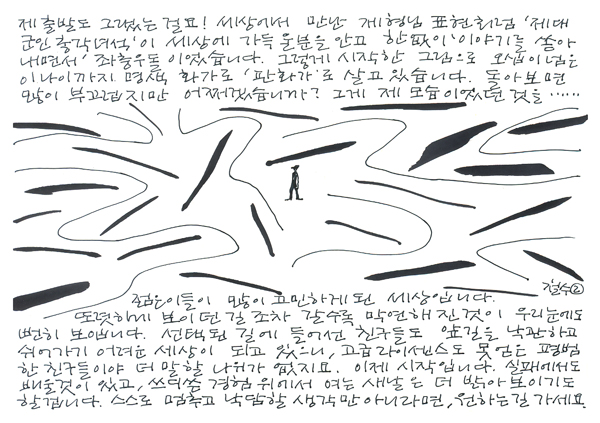 제 출발도 그랬는 걸요! 세상에서 만난 제 형님 표현희림 '제대
군인 총각녀석'이 세상에 가득 울분을 안고 한없이 이야기를 쏟아
내면서 좌충우돌 이었습니다. 그렇게 시작한 그림으로 오십이 넘은
이 나이까지 명색 화가로 '판화가'로 살고 있습니다. 돌아보면
많이 부끄럽지만 어쩌겠습니까? 그게 제 모습이었던 것을……
철수②
젊은이들이 많이 고민하게 된 세상입니다.
또렷하게 보이던 길 조차 갈수록 막연해 진것이 우리눈에도
뻔히 보입니다. 선택된 길에 들어선 친구들도 앞길을 낙관하고
쉬어가기 어려운 세상이 되고 있으니, 고급라이센스도 못얻은 평범
한 친구들이야 더 말할 나위가 없지요. 이제 시작입니다. 실패에서도
배울것이 있고, 쓰디쓴 경험 위에서 여는 새날은 더 밝아 보이기도
할겁니다. 스스로 멈추고 낙담할 생각만 아니라면, 원하는 길 가세요.